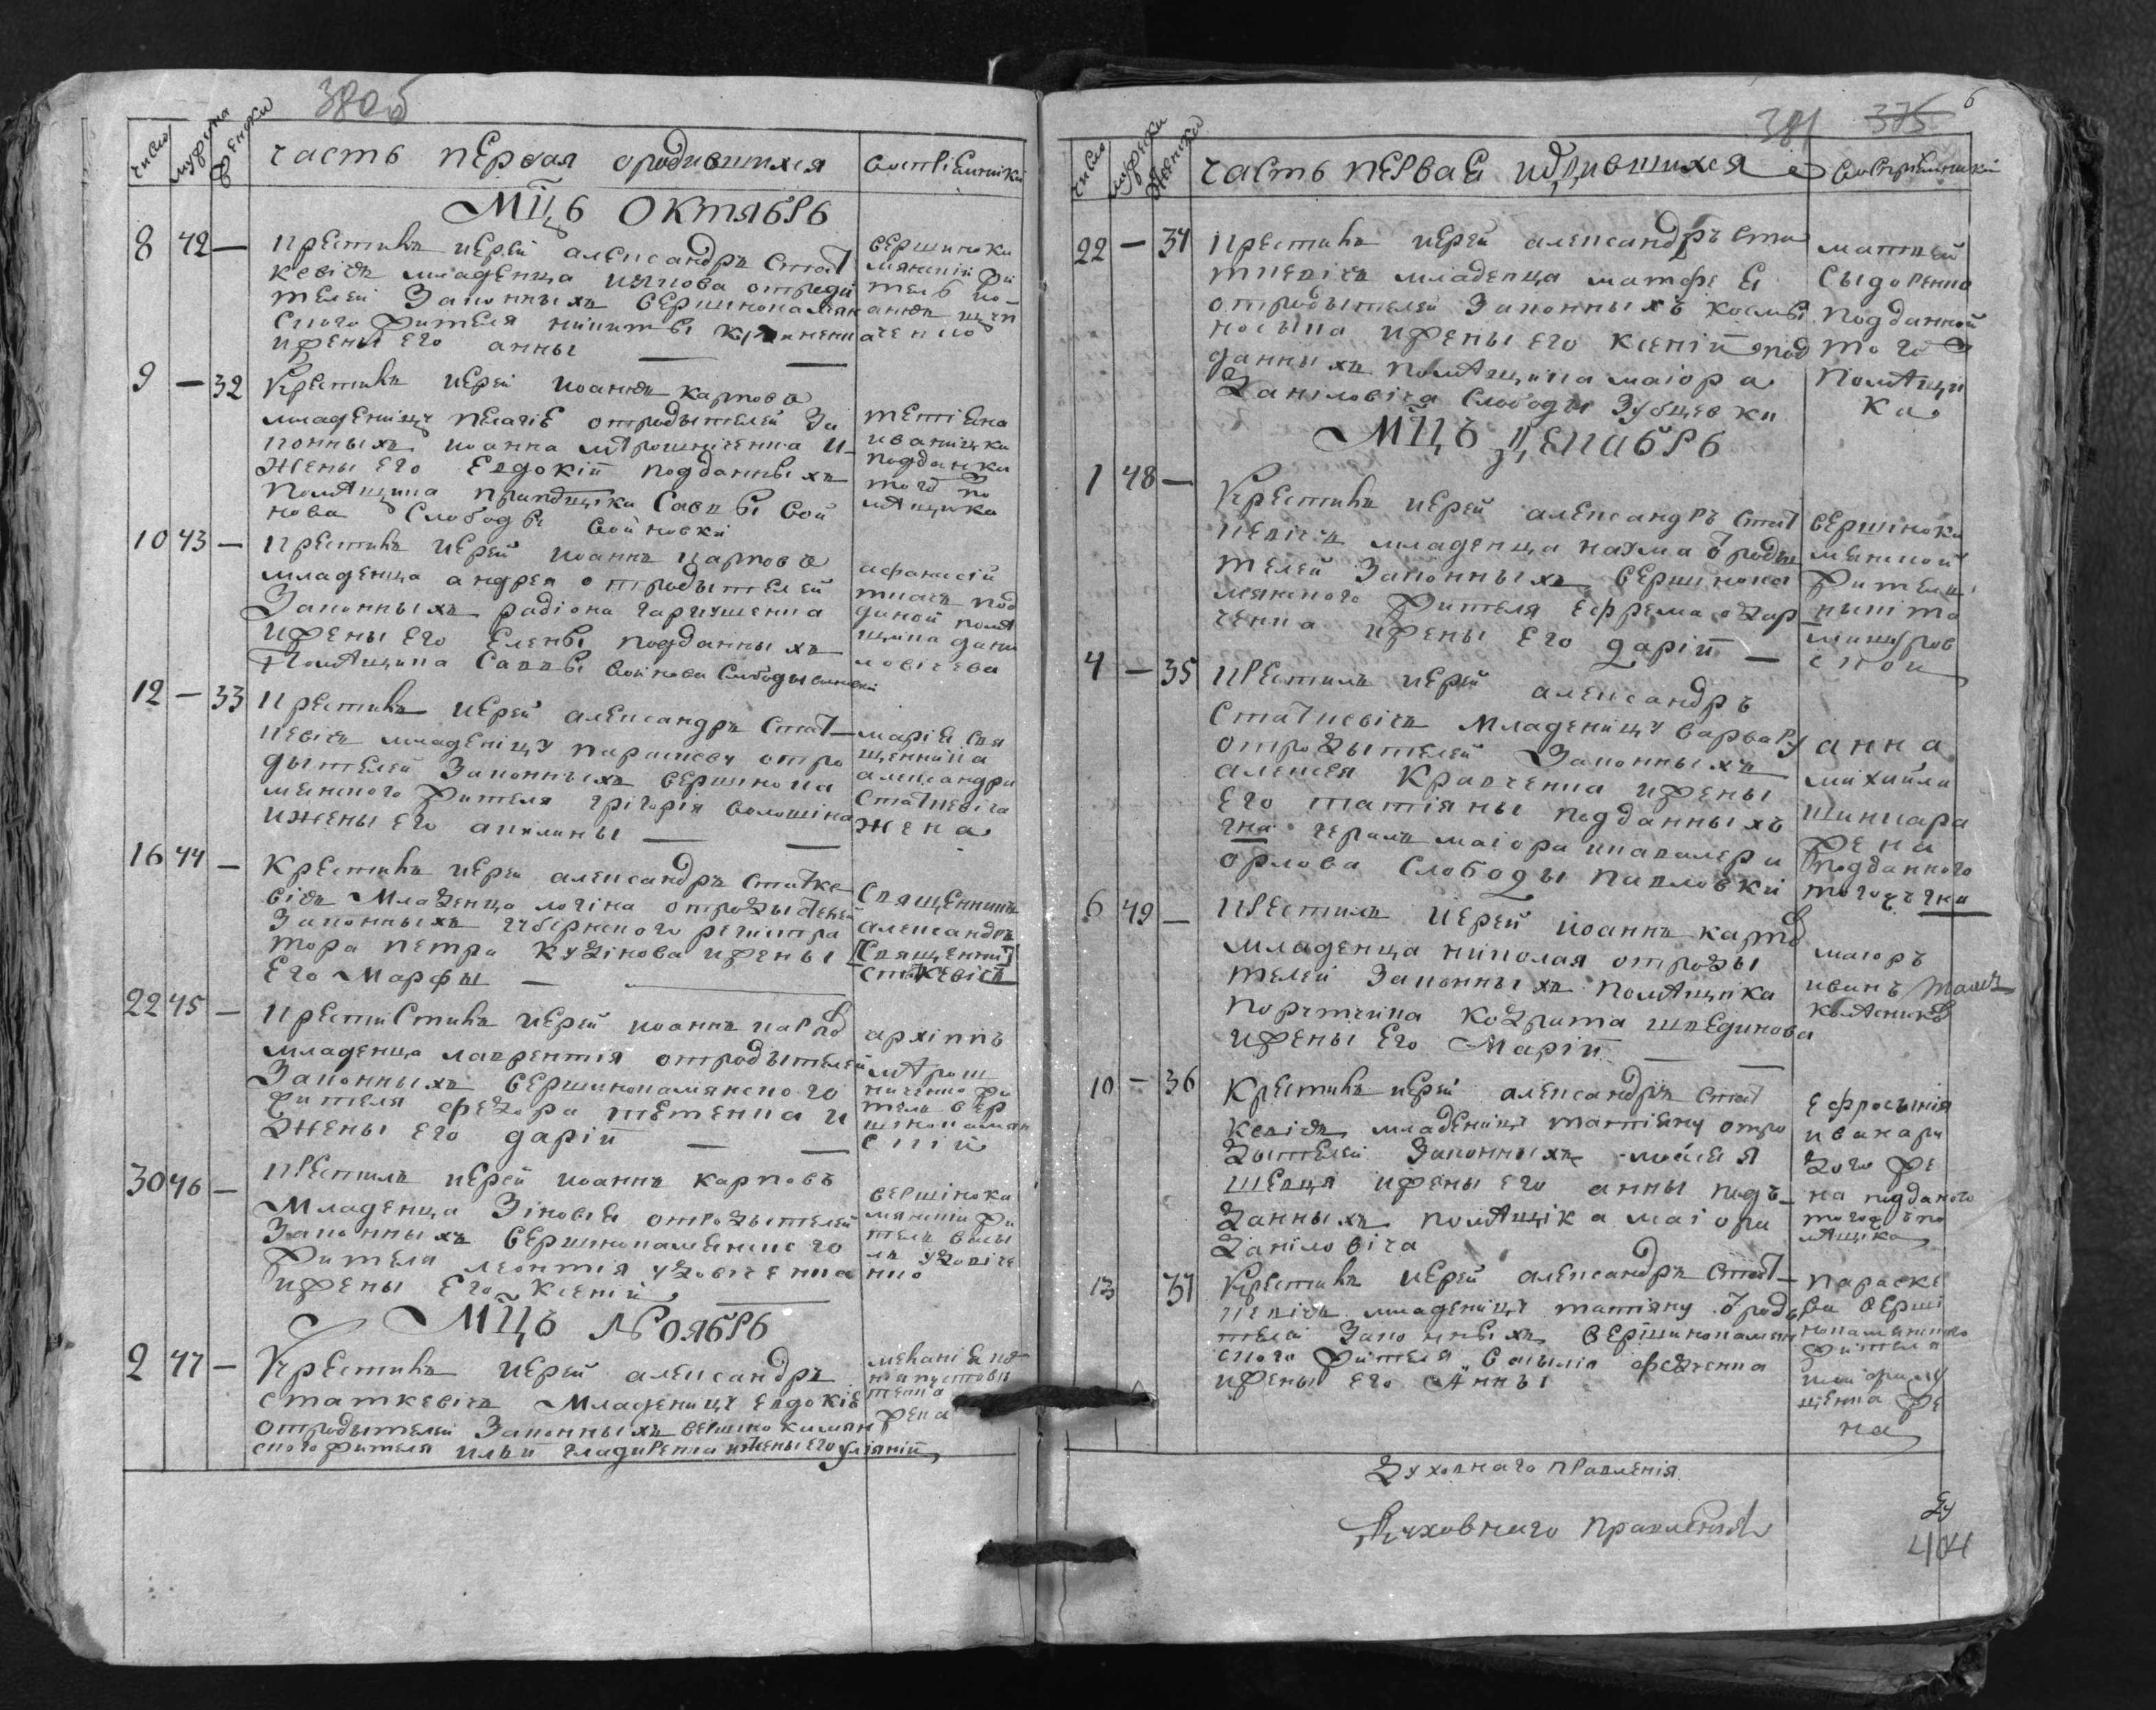 380об
число
мужеска
женски
часть первая ородившихся
восприемники
Мцъ октябрь
8 42 —
крестилъ иерей александръ стат
кевичъ младенца иякова отроди
телей законныхъ вершинокамян
ского жителя никиты
ижены его анны —
вершинока
мянский жи
тель ио-
аннъ
9 — 32
Крестилъ иерей иоаннъ карповъ
младеницу пелагіе отродытелей за
конныхъ иоанна мѣрошниченка и
жены его евдокіи подданныхъ
помѣщика прапорщика саввы вой
нова слободы войновки
тетіена
иваницка
подданки
того по
мѣщика
10 43 —
крестилъ иерей иоаннъ карповъ
младенца андрея отродытелей
законныхъ радіона гаркушенка
ижены его елены подданныхъ
помѣщика саввы войнова слободы войновки
афанасій
ткачъ под
даной помѣ
щика дани
ловичева
12 — 33
крестилъ иерей александръ стат—
кевичъ младеницу параскеву отро
дытелей законныхъ вершинока
менского жителя григорія волошина
ижены его акилины —
маріе свя
щенника
александра
статкевича
жена
16 44 —
крестилъ иерей александръ статке
вичъ младенца логина отродытелей
законныхъ губернского регистра
тора петра кудінова ижены
его марфы —
священникъ
александръ
[священник]
статкевичъ
22 45 —
крестистилъ иерей иоаннъ карповъ
младенца лаврентія отродытелей
законныхъ вершинокамянского
жителя федора тетенка и
жены его даріи —
архіппъ
мѣрош
ниченко жи
тель вер
шинокамян
скій
30 46 —
крестилъ иерей иоаннъ карповъ
младенца зіновія отродытелей
законныхъ вершинокаменского
жителя леонтія удовиченка
ижены его ксеніи
вершінока
мянскій жи
тель васи
ль удовиче
нко
Мцъ Ноябрь
2 47 —
Крестилъ иерей александръ
статкевичъ младеницу евдокіе
отродытелей законныхъ вершинокамян
ского жителя ильи гладиренка ижены его уліяніи
меланіе
жена
381 375 6
число
мужеска
женски
часть первае одродившихся
восприемники
22 — 34
крестилъ иерей александръ ста
ткевичъ младенца матфе е
отродытелей законныхъ космы
носыка ижены его ксеніи под
данныхъ помѣщика маіора
даніловича слободы зубцевки
матвей
сыдоренко
подданной
того
помѣщи
ка
Мцъ декабрь
1 48 —
Крестилъ иерей александръ стат
кевичъ младенца наума ѿроды
телей законныхъ вершинока
мянского жителя ефрема
ченка ижены его даріи —
вершинока
менской
житель
никита
4 — 35
крестилъ иерей александръ
статкевичъ младеницу варвару
отродытелей законныхъ
алексея кравченка ижены
его татіяны подданныхъ
гна генралъ маіора икавалера
орлова слободы павловки
анна
михайла
шинкара
жена
подданного
тогожъ гна
6 49 —
крестилъ иерей иоаннъ карповъ
младенца николая отроды
телей законныхъ помѣщика
поручика кодрата шведикова
ижены его маріи —
маіоръ
иванъ
10 — 36
крестилъ иерей александръ стат
кевичъ младеницу татіяну отро
дытелей законныхъ мойсея
шевця ижены его анны подъ—
данныхъ помѣщіка маіора
даніловіча
ефросинія
ивана ру
дого же
на подданого
тогожъ по
мѣщика
13 37
Крестилъ иерей александръ стат—
кевичъ младеницу татіяну ѿроды
телей законныхъ вершинокамян
ского жителя василія федченка
ижены его анны
параске
ва верші
нокаменского
жителя
щенка же
на
духовнаго правленія
Духовнаго правленія
404